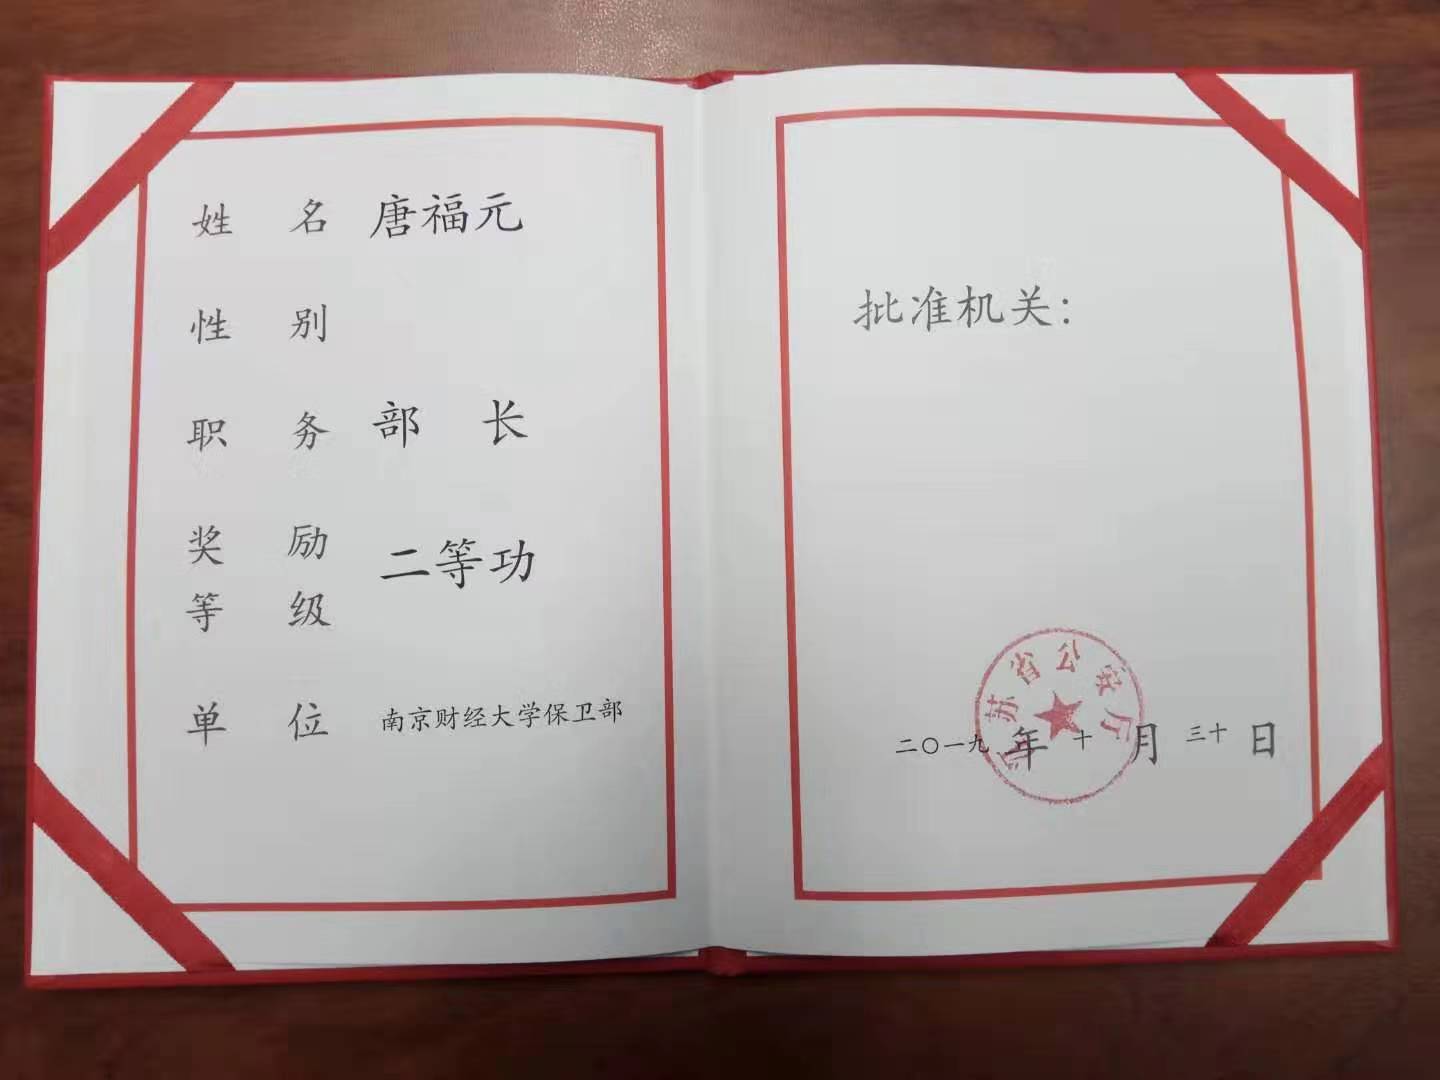 姓 名 唐福元
性 别
职 务 部 长
奖 励
等 级 二等功
单 位 南京财经大学保卫部
批准机关：
江苏省公安厅
二〇一九年十月三十日